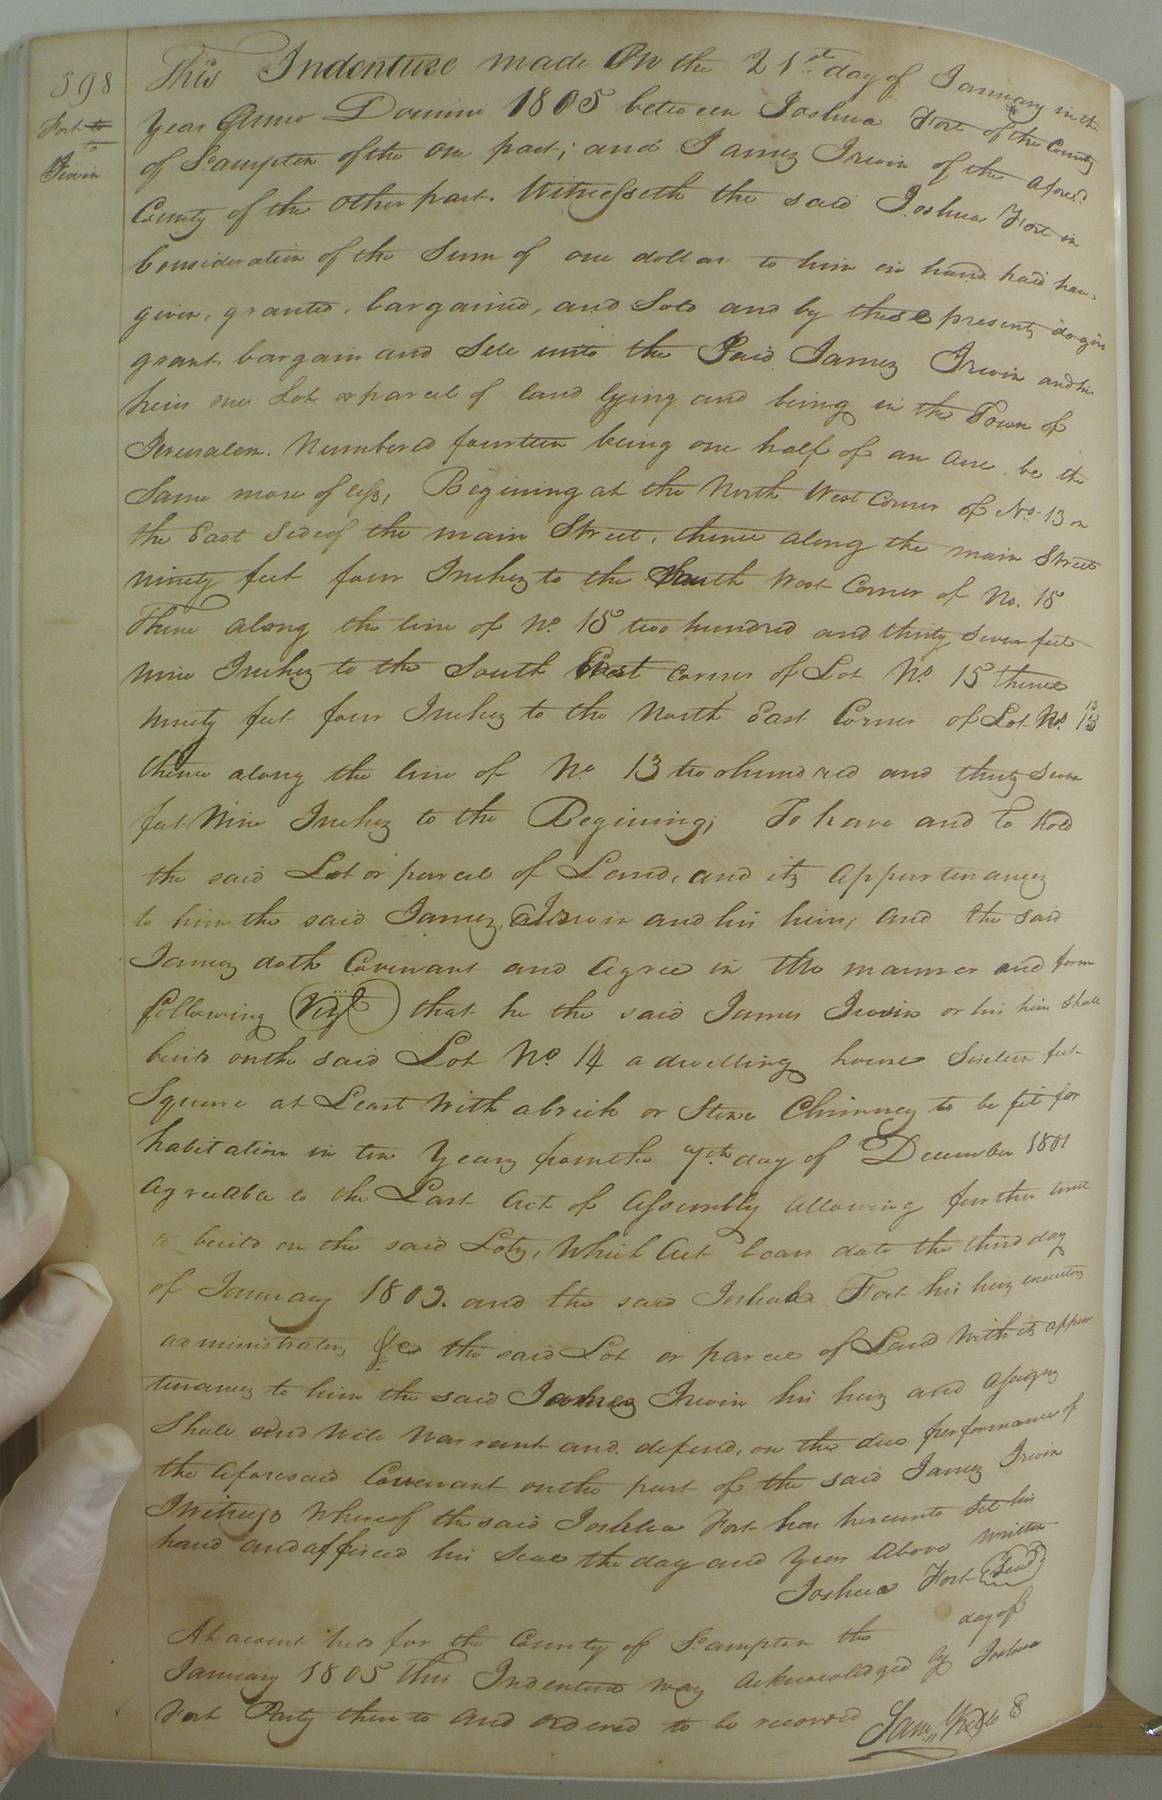 398
Fort to
to
Irwin
This Indenture made On the 21st day of January in the
Year Anno Domini 1805 between Joshua Fort of the County
of S.ampton of the one part; and James Irwin of the afores.d
County of the other part. Witnesseth the said Joshua Fort in
Consideration of the Sum of one dollar to him in hand paid hav.
given, granted, bargained, and Sold and by these presents do give
grant bargain and Sell unto the Said James Irwin and his
heirs one Lot or parcel of land lying and being in the Town of
Jerusalem. Numbered fourteen being one half of an acre be the
Same more of less, Begining at the North West Corner of No. 13 on
the East Side of the main Street, thence along the main Street
ninety feet four Inches to the South West Corner of No. 15
Thence along the line of No. 15 two hundred and thirty Seven feet
nine Inches to the South East corner of Lot No. 15 thence
ninety feet four Inches to the North East Corner of Lot No. 13
thence along the line of No. 13 two hundred and thirty Seven
feet Nine Inches to the Begining; To have and to hold
the said Lot or parcel of Land, and its appurtenances
to him the said James Irwin and his heirs; and the said
James doth Covenant and agree in the manner and form
following (Vizt) that he the said James Irwin or his heirs shall
build on the said Lot No. 14 a dwelling house Sixteen feet
Square at Least With a brick or Stone Chimney to be fit for
habitation in ten Years from the 7th day of December 1801
agreeable to the Last Act of Assembly allowing further time
to build on the said Lots, Which Act bears date the third day
of January 1803. and the said Joshua Fort his heirs executors
administrators &c the said Lot or parcel of Land With its appur
tenances to him the said James Irwin his heirs and assigns
Shall and Will Warrant and defend, on the due performance of
the aforesaid Covenant on the part of the said James Irwin
In witness Whereof the said Joshua Fort has hereunto Set his
hand and affixed his Seal the day and Year Above written
Joshua Fort (Seal)
At a court held for the County of S.ampton the day of
January 1805 This Indenture was acknowledged by Joshua
Fort Party thereto and ordered to be recorded